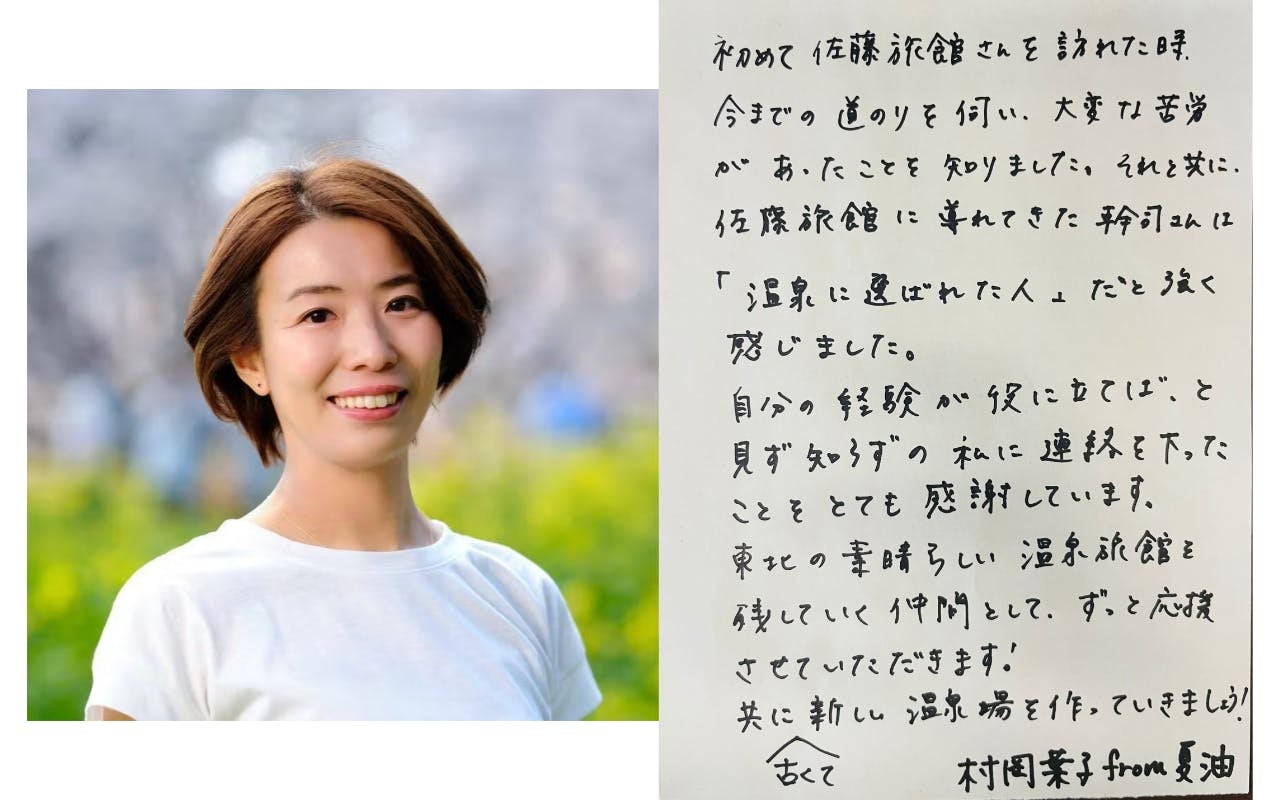 初めて佐藤旅館さんを訪れた時、
今までの道のりを伺い、大変な苦労
があったことを知りました。それと共に、
佐藤旅館に導れてきた幹司さんは
「温泉に選ばれた人」だと強く
感じました。
自分の経験が役に立てば、と
見ず知らずの私に連絡を下った
ことをとても感謝しています。
東北の素晴らしい温泉旅館を
残していく仲間として、ずっと応援
させていただきます!
共に新しい温泉場を作っていきましょう!
古くて
村岡葉子from夏油